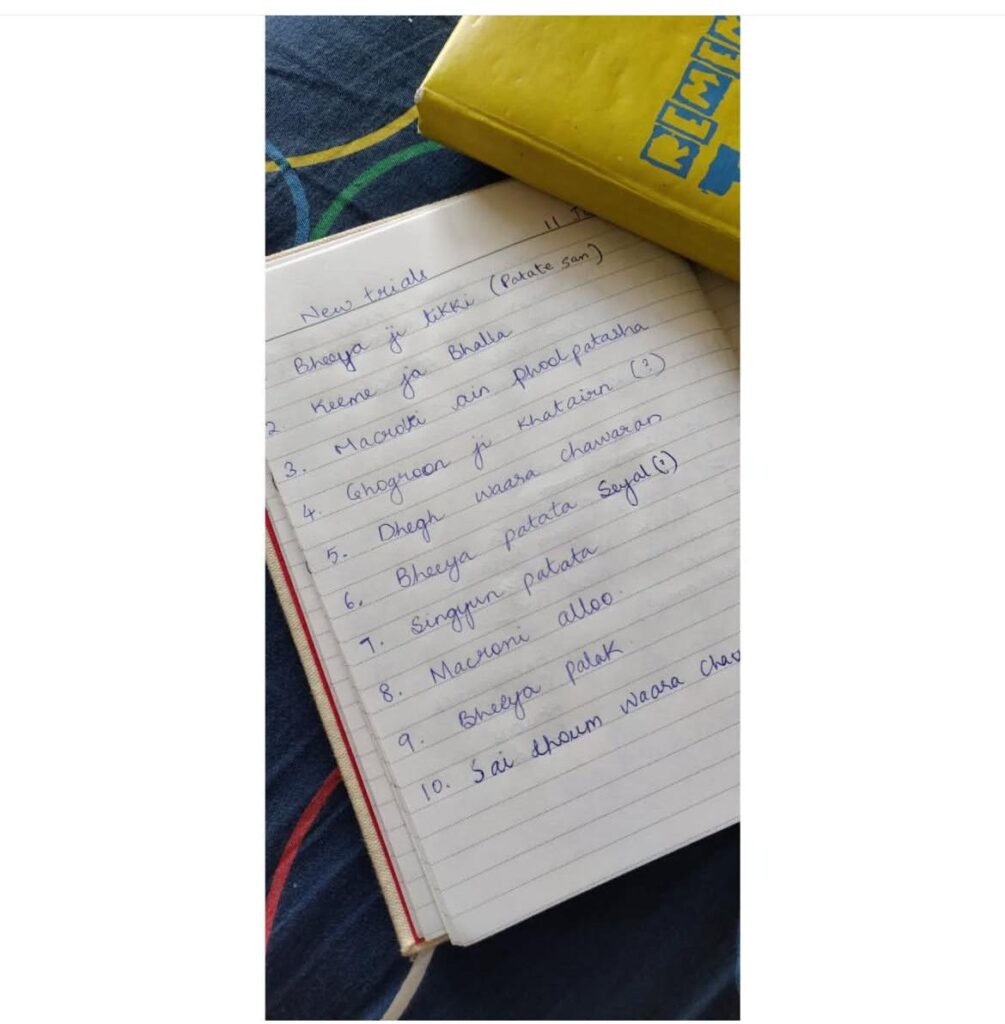 REMEM
11 J
New trials
Bheeya ji tikki (Patate san)
2. Keeme ja Bhalla
3. Macroki ain phool patasha
4. Ghogroon ji Khatairn (?)
5. Dhegh waara chawaran
6. Bheeya patata Seyal (?)
7. Singyun patata
8. Macroni alloo.
9. Bheeya palak.
10. Sai dhoum waara chav